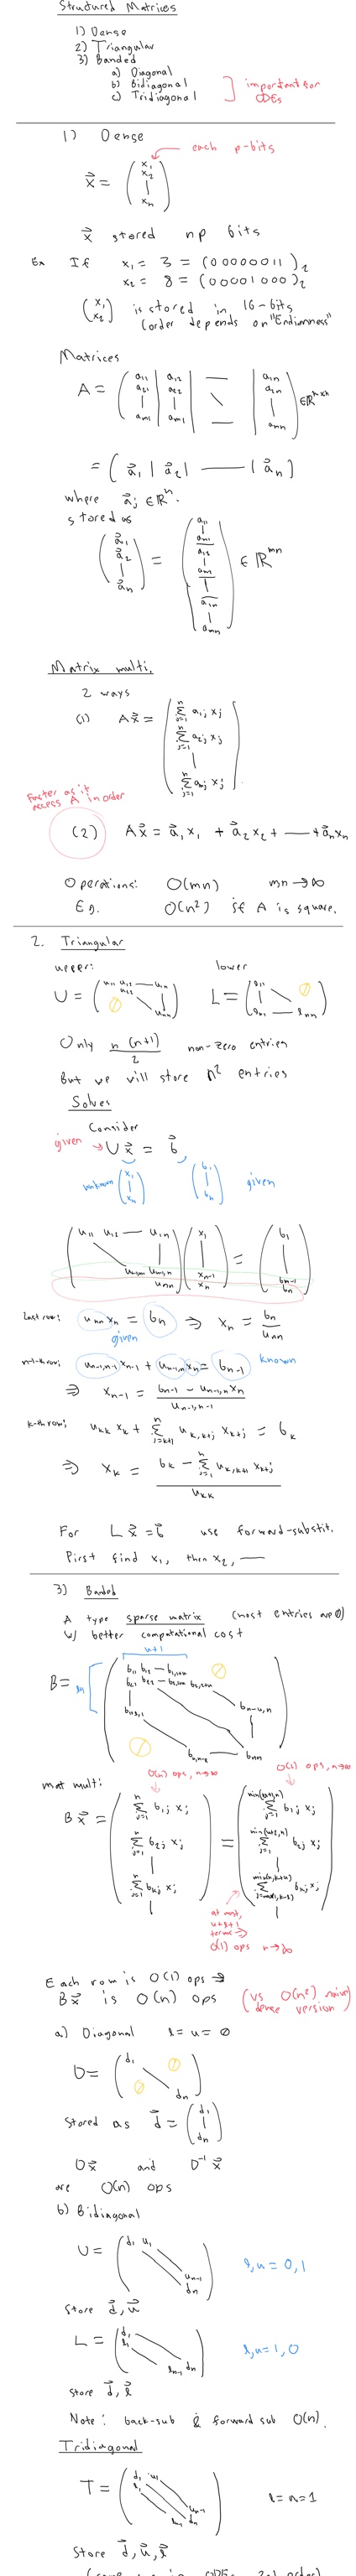 Structured Matrices
1) Dense
2) Triangular
3) Banded
a) Diagonal
b) Bidiagonal
c) Tridiagonal
important for ODEs
1) Dense
each p-bits
x⃗ = (x₁ x₂ | xₙ)
x⃗ stored np bits
Ex If x₁ = 3 = (00000011)₂
x₂ = 8 = (00001000)₂
(x₁ x₂) is stored in 16-bits
(order depends on "Endianness"
Matrices
A = (a₁₁ a₂₁ | aₘ₁ | a₁₂ a₂₂ | aₘ₂ | — \ — | a₁ₙ a₂ₙ | aₘₙ) ∈ ℝ
= (a⃗₁ | a⃗₂ | —— | a⃗ₙ)
where a⃗ⱼ ∈ ℝⁿ.
stored as
(a⃗₁ a⃗₂ | a⃗ₙ) = (a₁₁ | aₘ₁ a₁₂ | aₘ₁ | a₁ₙ | aₘₙ) ∈ ℝᵐⁿ
Matrix multi.
2 ways
(1) Ax⃗ = (∑ⱼ₌₁ⁿ a₁ⱼ xⱼ ∑ⱼ₌₁ⁿ a₂ⱼ xⱼ | ∑ⱼ₌₁ⁿ aₘⱼ xⱼ)
Faster as it
access A in order
(2) Ax⃗ = a⃗₁x₁ + a⃗₂x₂ + —— + a⃗ₙxₙ
Operations: O(mn) mn → ∞
Eg. O(n²) if A is square.
2. Triangular
upper: lower
U = (u₁₁ u₁₂ — u₁ₙ u₂₂ \ | uₙₙ 0) L = (l₁₁ | \ lₙ₁ — lₙₙ 0)
Only n(n+1)/2 non-zero entries
But we will store n² entries
Solves
Consider
given → Ux⃗ = b⃗
unknown (x₁ | xₙ) (b₁ | bₙ) given
(u₁₁ u₁₂ — u₁ₙ \ | uₙ₋₁,ₙ₋₁ uₙ₋₁,ₙ uₙₙ)(x₁ | xₙ₋₁ xₙ) = (b₁ | bₙ₋₁ bₙ)
last row: uₙₙxₙ = bₙ ⇒ xₙ = bₙ/uₙₙ
given
n-1-th row: uₙ₋₁,ₙ₋₁ xₙ₋₁ + uₙ₋₁,ₙ xₙ = bₙ₋₁ known
⇒ xₙ₋₁ = (bₙ₋₁ - uₙ₋₁,ₙ xₙ)/uₙ₋₁,ₙ₋₁
k-th row: uₖₖ xₖ + ∑ⱼ₌ₖ₊₁ⁿ uₖ,ₖ₊ⱼ xₖ₊ⱼ = bₖ
⇒ xₖ = (bₖ - ∑ⱼ₌₁ⁿ uₖ,ₖ₊ₗ xₖ₊ⱼ)/uₖₖ
For Lx⃗ = b⃗ use forward-substit.
First find x₁, then x₂, ——
3) Banded
A type sparse matrix (most entries are 0)
w/ better computational cost
u+1
B =
0
bₙₙ
O(n) ops, n→∞ O(1) ops, n→∞
mat multi:
Bx⃗ = (∑ⱼ₌₁ⁿ b₁ⱼ xⱼ ∑ⱼ₌₁ⁿ b₂ⱼ xⱼ | ∑ⱼ₌₁ⁿ bₖⱼ xⱼ |) =
at most,
u+l+1
terms ⇒
O(1) ops n→∞
Each row is O(1) ops ⇒
Bx⃗ is O(n) ops (vs O(n²) naive
dense version)
a) Diagonal l = u = 0
D = (d₁ \ dₙ 0 0)
Stored as d⃗ = (d₁ | dₙ)
Dx⃗ and D⁻¹x⃗
are O(n) ops
b) Bidiagonal
U = (d₁ u₁ \ uₙ₋₁ dₙ) l,u = 0,1
store d⃗, u⃗
L = (d₁ l₁ \ lₙ₋₁ dₙ) l,u = 1,0
store d⃗, l⃗
Note: back-sub & forward sub O(n).
Tridiagonal
T = (d₁ u₁ l₁ \ uₙ₋₁ lₙ₋₁ dₙ) l = u = 1
Store d⃗, u⃗, l⃗